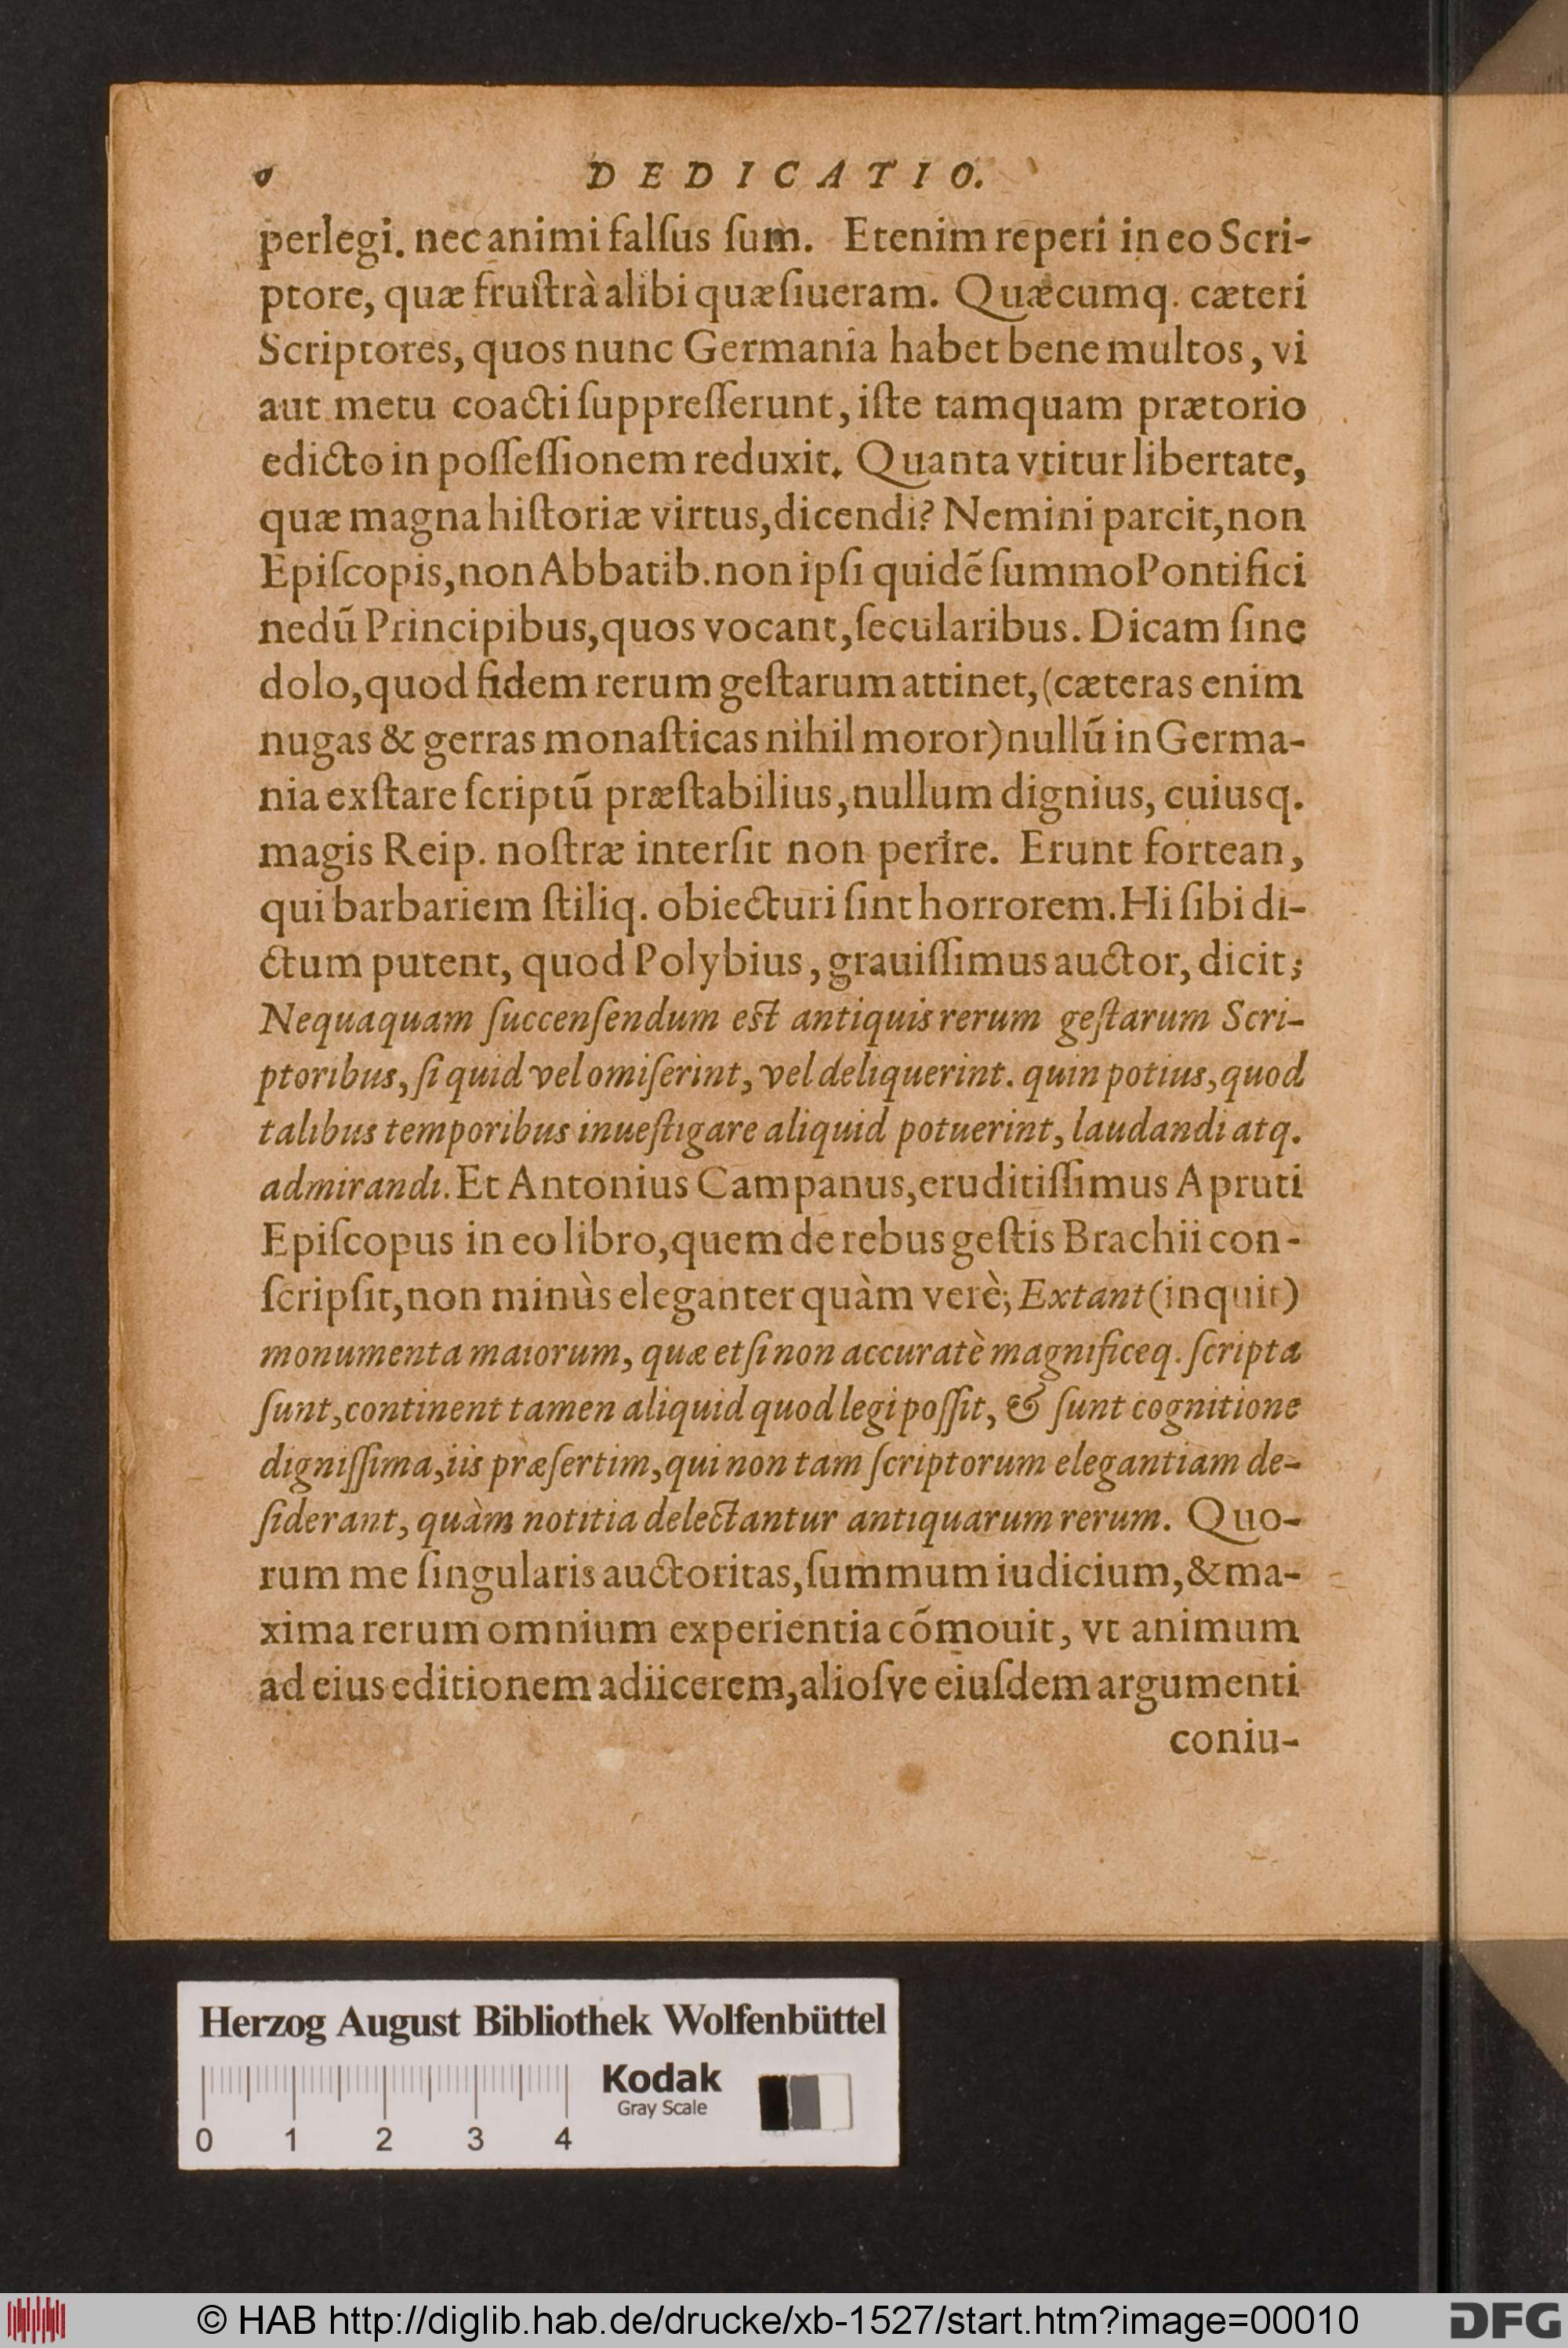 DEDICATIO.
perlegi. nec animi falſus ſum. Etenim reperi in eo Scri-
ptore, quæ fruſtrà alibi quæſiueram. Quæcumq. cæteri
Scriptores, quos nunc Germania habet bene multos, vi
aut metu coacti ſuppreſſerunt, iſte tamquam prætorio
edicto in poſſeſſionem reduxit. Quanta vtitur libertate,
quæ magna hiſtoriæ virtus, dicendi? Nemini parcit, non
Epiſcopis, non Abbatib. non ipſi quidẽ ſummo Pontifici
nedũ Principibus, quos vocant, ſecularibus. Dicam ſine
dolo, quod fidem rerum geſtarum attinet, (cæteras enim
nugas & gerras monaſticas nihil moror) nullũ in Germa-
nia exſtare ſcriptũ præſtabilius, nullum dignius, cuiusq.
magis Reip. noſtræ interſit non perire. Erunt fortean,
qui barbariem ſtiliq. obiecturi ſint horrorem. Hi ſibi di-
ctum putent, quod Polybius, grauiſſimus auctor, dicit;
Nequaquam ſuccenſendum eſt antiquis rerum geſtarum Scri-
ptoribus, ſi quid vel omiſerint, vel deliquerint. quin potius, quod
talibus temporibus inueſtigare aliquid potuerint, laudandi atq.
admirandi. Et Antonius Campanus, eruditiſſimus Apruti
Epiſcopus in eo libro, quem de rebus geſtis Brachii con-
ſcripſit, non minùs eleganter quàm verè; Extant (inquit)
monumenta maiorum, quæ etſi non accuratè magnificeq. ſcripta
ſunt, continent tamen aliquid quod legi poſſit, & ſunt cognitione
digniſſima, iis præſertim, qui non tam ſcriptorum elegantiam de-
ſiderant, quàm notitia delectantur antiquarum rerum. Quo-
rum me ſingularis auctoritas, ſummum iudicium, & ma-
xima rerum omnium experientia cõmouit, vt animum
ad eius editionem adiicerem, alioſve eiuſdem argumenti
coniu-
Herzog August Bibliothek Wolfenbüttel
Kodak
Gray Scale
0 1 2 3 4
© HAB http://diglib.hab.de/drucke/xb-1527/start.htm?image=00010
DFG